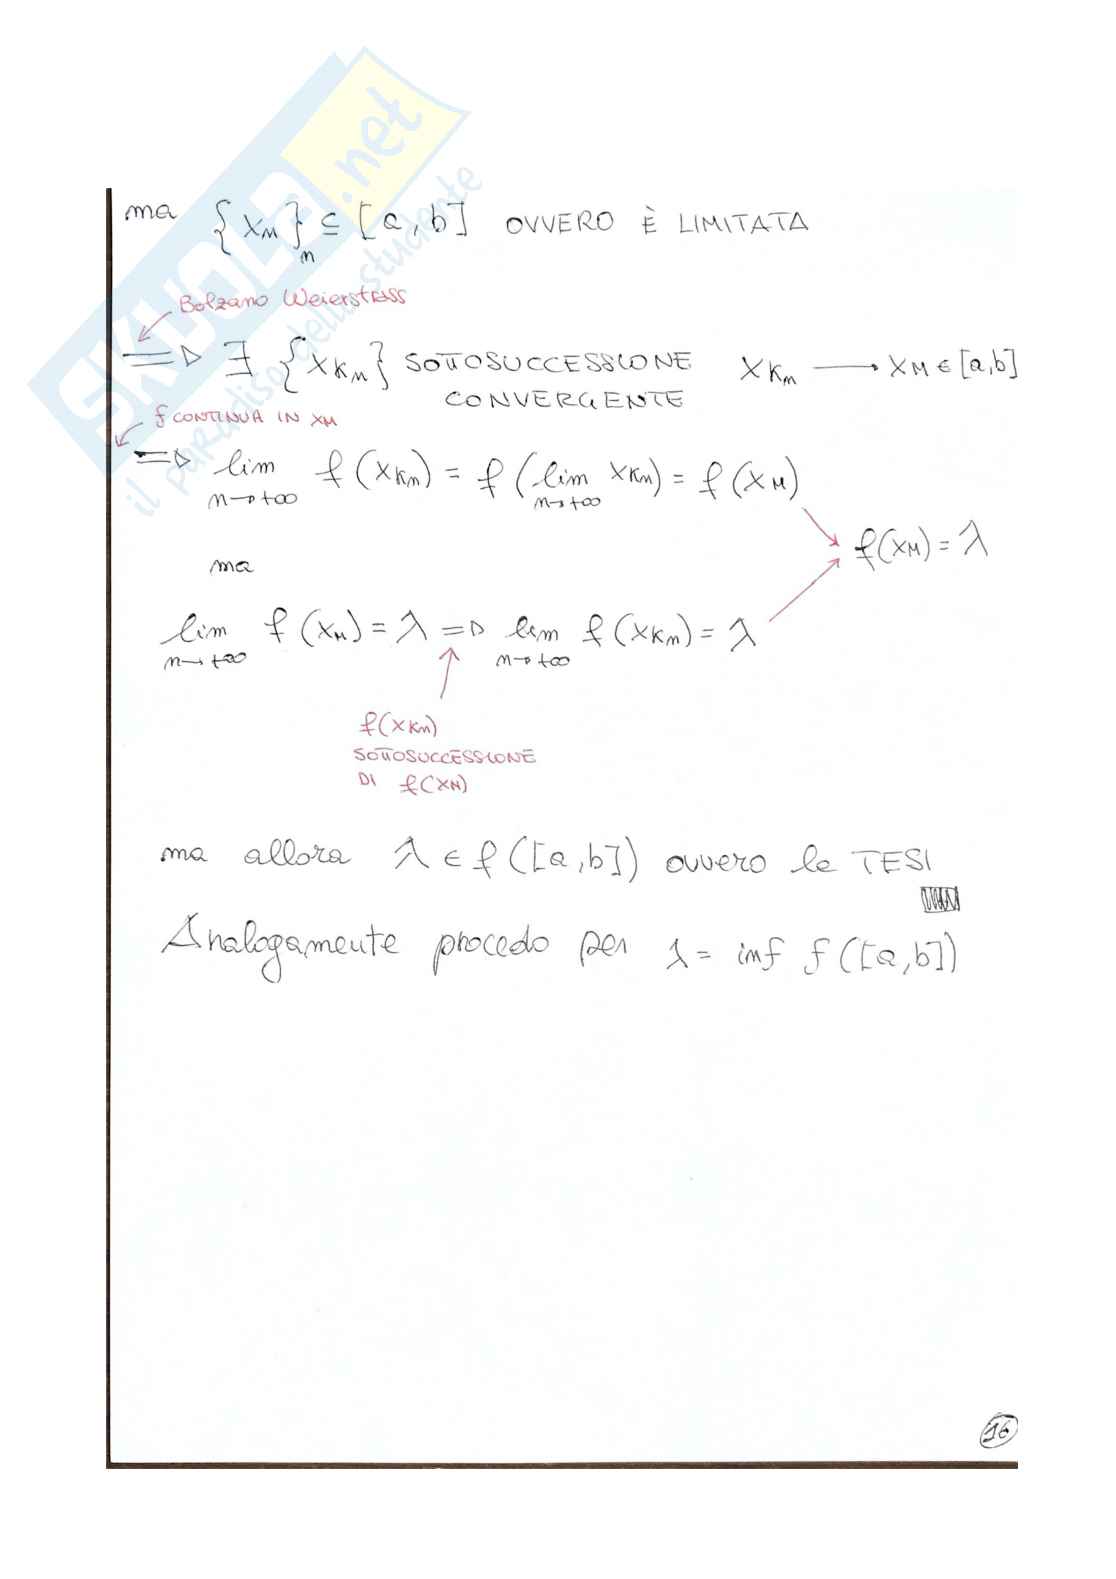 SKUOLA.net
il paradiso dello studente
ma {xn}n ⊆ [a,b] OVVERO È LIMITATA
Bolzano Weierstrass
=> ∃ {xKn} SOTTOSUCCESSIONE xKn → xM ∈ [a,b]
CONVERGENTE
f CONTINUA IN xM
=> lim f(xKn) = f(lim xKn) = f(xM)
n→+∞ n→+∞
f(xM) = λ
ma
lim f(xn) = λ => lim f(xKn) = λ
n→+∞ n→+∞
f(xKn)
SOTTOSUCCESSIONE
DI f(xn)
ma allora λ ∈ f([a,b]) ovvero la TESI
Analogamente procedo per λ = inf f([a,b])
16